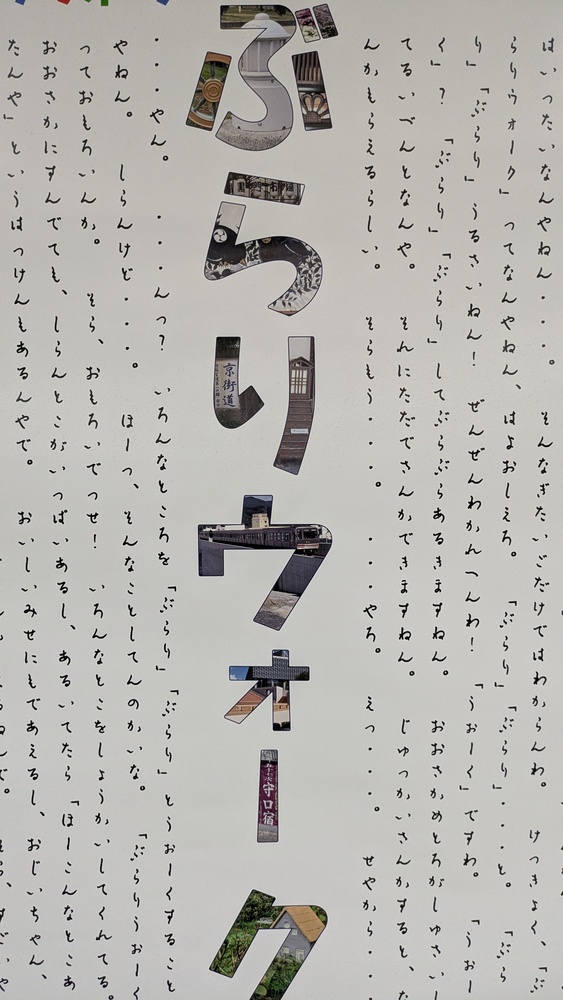 はいったいなんやねん・・・。　そんなぎたいごだけではわからんわ。　けっきょく、「ぶ
らりウォーク」ってなんやねん、はよおしえろ。　「ぶらり」「ぶらり」・・・と。　「ぶら
り」「ぶらり」うるさいねん！　ぜんぜんわかれへんわ！　「うぉーく」ですわ。　「うぉー
く」？　「ぶらり」「ぶらり」してぶらぶらあるきますねん。　おおさかめとろがしゅさいし
てるいべんとなんや。　それにただでさんかできますねん。　じゅっかいさんかすると、な
んかもらえるらしい。　そらもう・・・。　・・・やろ。　えっ・・・。　せやから・・
ぶらりウォーク
京街道
守口宿
・・・やん。　・・・んっ？　いろんなところを「ぶらり」「ぶらり」とうぉーくすること
やねん。　しらんけど・・・。　ほーっ、そんなことしてんのかいな。　「ぶらりうぉーく
っておもろいんか。　そら、おもろいでっせ！　いろんなとこをしょうかいしてくれてる。
おおさかにすんでても、しらんとこがいっぱいあるし、あるいてたら「ほーこんなとこあ
たんや」というはっけんもあるんやで。　おいしいみせにもであえるし、おじいちゃん、